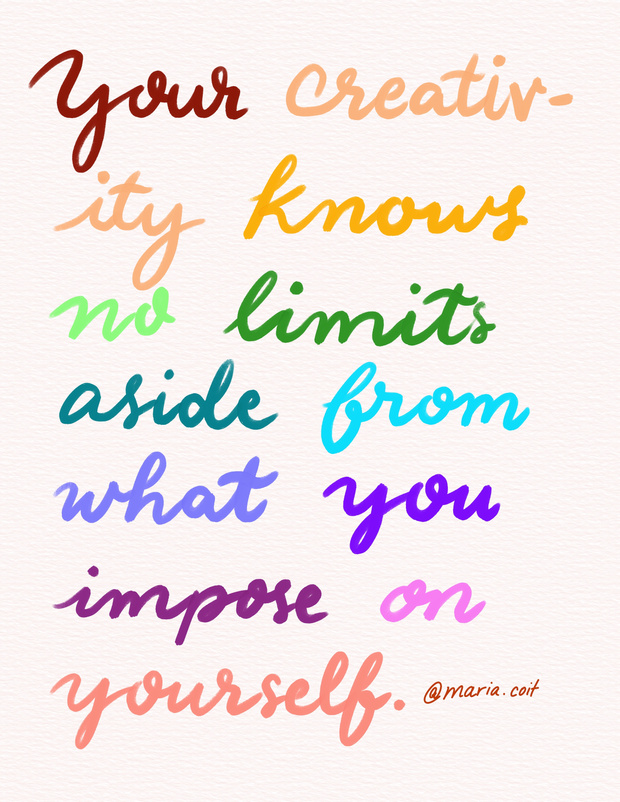 Your creativ-
ity knows
no limits
aside from
what you
impose on
yourself. @maria.coit